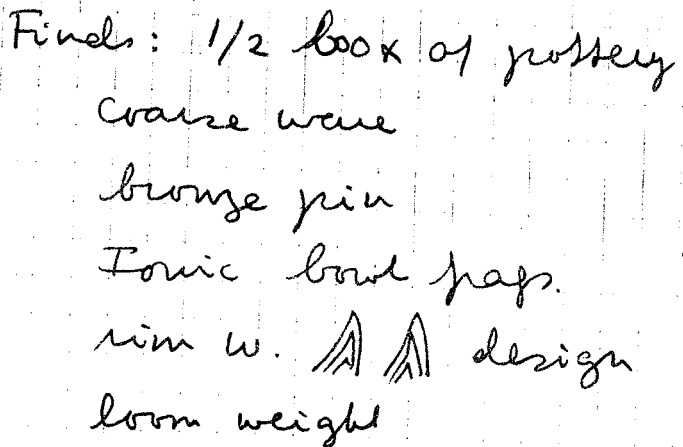 Finds: 1/2 boox of pottery
coarse ware
bronze pin
Ionic bowl frags.
rim w. design
loom weight